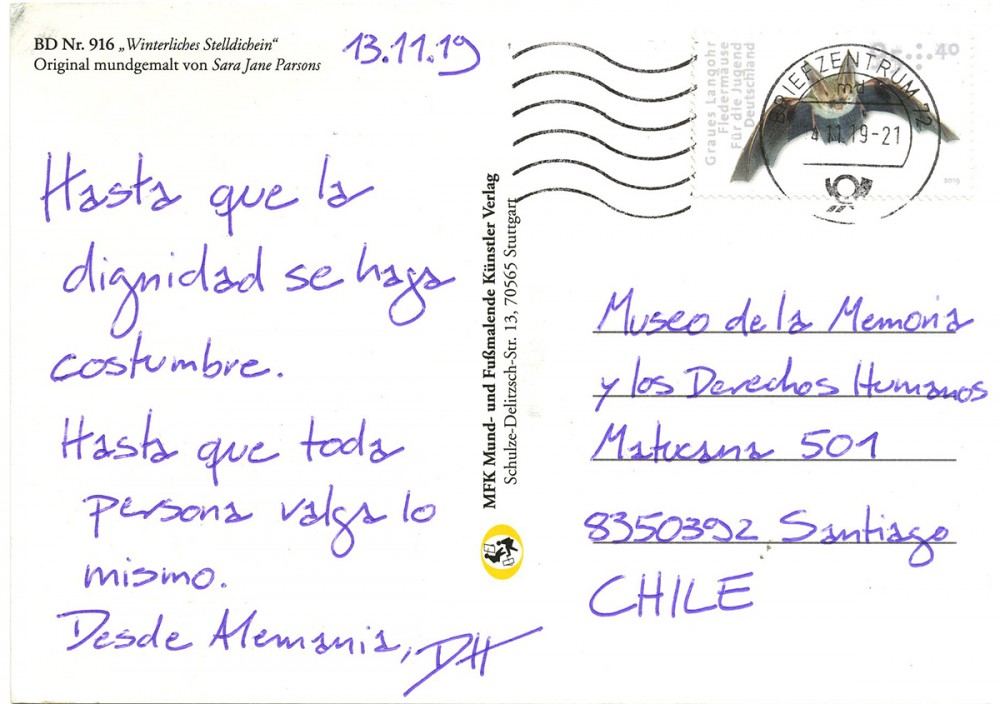 BD Nr. 916 „Winterliches Stelldichein“
Original mundgemalt von Sara Jane Parsons
13.11.19
Hasta que la
dignidad se haga
costumbre.
Hasta que toda
persona valga lo
mismo.
Desde Alemania, DH
MFK Mund- und Fußmalende Künstler Verlag
Schulze-Delitzsch-Str. 13, 70565 Stuttgart
Graues Langohr
Fledermäuse
Für die Jugend
Deutschland
40
2019
BRIEFZENTRUM 72
md
4.11.19-21
Museo de la Memoria
y los Derechos Humanos
Matucana 501
8350392 Santiago
CHILE